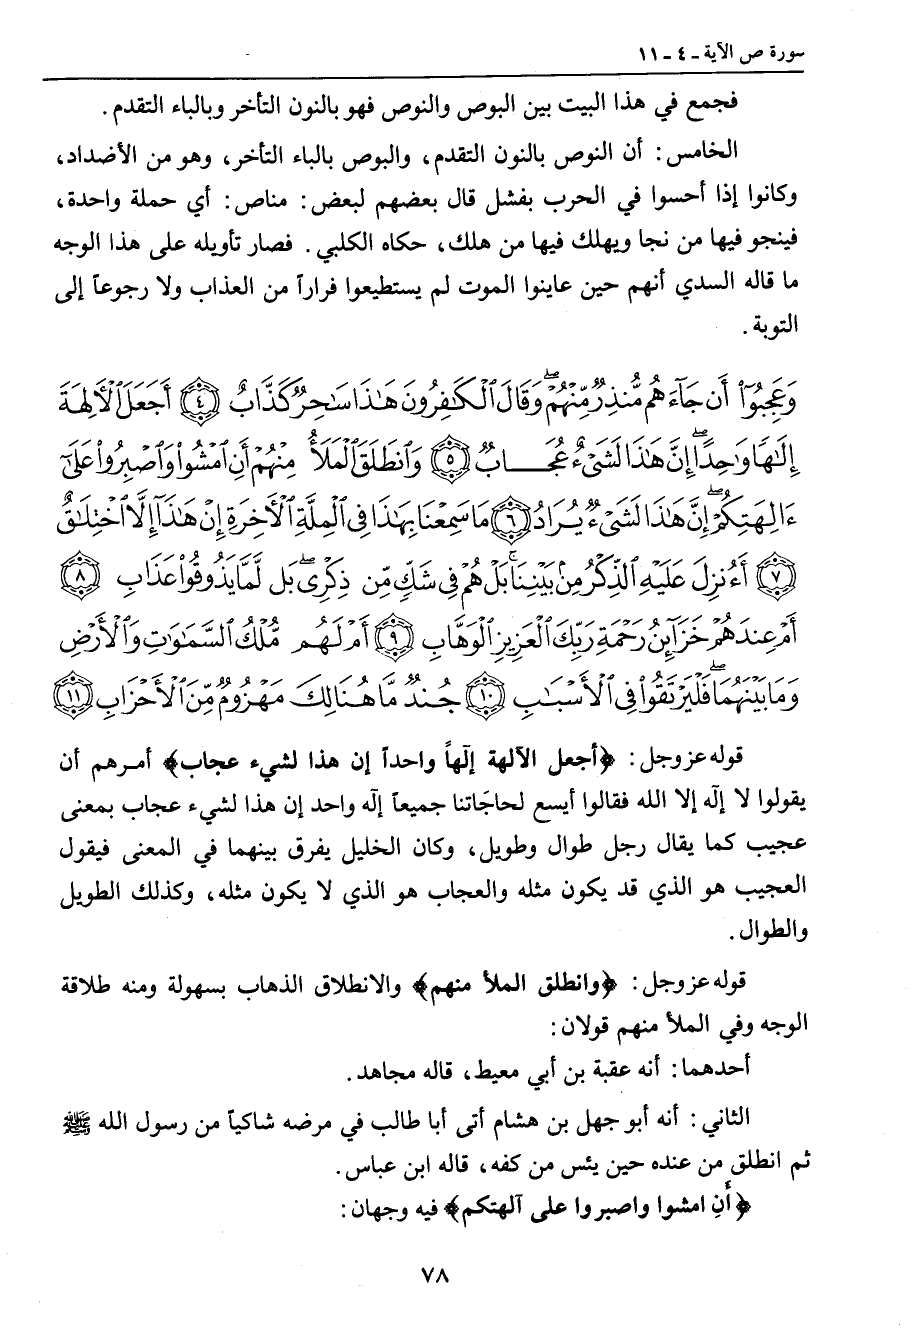 سورة ص الآية - ٤ - ١١
فجمع في هذا البيت بين البوص والنوص فهو بالنون التأخر وبالباء التقدم.
الخامس: أن النوص بالنون التقدم، والبوص بالباء التأخر، وهو من الأضداد،
وكانوا إذا أحسوا في الحرب بفشل قال بعضهم لبعض: مناص: أي حملة واحدة،
فينجو فيها من نجا ويهلك فيها من هلك، حكاه الكلبي. فصار تأويله على هذا الوجه
ما قاله السدي أنهم حين عاينوا الموت لم يستطيعوا فراراً من العذاب ولا رجوعاً إلى
التوبة.
وَعَجِبُوٓاْ أَن جَآءَهُم مُّنذِرٞ مِّنۡهُمۡۖ وَقَالَ ٱلۡكَٰفِرُونَ هَٰذَا سَٰحِرٞ كَذَّابٌ ﴿٤﴾ أَجَعَلَ ٱلۡأٓلِهَةَ
إِلَٰهٗا وَٰحِدًاۖ إِنَّ هَٰذَا لَشَيۡءٌ عُجَابٞ ﴿٥﴾ وَٱنطَلَقَ ٱلۡمَلَأُ مِنۡهُمۡ أَنِ ٱمۡشُواْ وَٱصۡبِرُواْ عَلَىٰٓ
ءَالِهَتِكُمۡۖ إِنَّ هَٰذَا لَشَيۡءٞ يُرَادُ ﴿٦﴾ مَا سَمِعۡنَا بِهَٰذَا فِي ٱلۡمِلَّةِ ٱلۡأٓخِرَةِ إِنۡ هَٰذَآ إِلَّا ٱخۡتِلَٰقٌ
﴿٧﴾ أَءُنزِلَ عَلَيۡهِ ٱلذِّكۡرُ مِنۢ بَيۡنِنَاۚ بَلۡ هُمۡ فِي شَكّٖ مِّن ذِكۡرِيۖ بَل لَّمَّا يَذُوقُواْ عَذَابِ ﴿٨﴾
أَمۡ عِندَهُمۡ خَزَآئِنُ رَحۡمَةِ رَبِّكَ ٱلۡعَزِيزِ ٱلۡوَهَّابِ ﴿٩﴾ أَمۡ لَهُم مُّلۡكُ ٱلسَّمَٰوَٰتِ وَٱلۡأَرۡضِ
وَمَا بَيۡنَهُمَاۖ فَلۡيَرۡتَقُواْ فِي ٱلۡأَسۡبَٰبِ ﴿١٠﴾ جُندٞ مَّا هُنَالِكَ مَهۡزُومٞ مِّنَ ٱلۡأَحۡزَابِ ﴿١١﴾
قوله عز وجل: ﴿أجعل الآلهة إلهاً واحداً إن هذا لشيء عجاب﴾ أمرهم أن
يقولوا لا إله إلا الله فقالوا أيسع لحاجاتنا جميعاً إله واحد إن هذا لشيء عجاب بمعنى
عجيب كما يقال رجل طوال وطويل، وكان الخليل يفرق بينهما في المعنى فيقول
العجيب هو الذي قد يكون مثله والعجاب هو الذي لا يكون مثله، وكذلك الطويل
والطوال.
قوله عز وجل: ﴿وانطلق الملأ منهم﴾ والانطلاق الذهاب بسهولة ومنه طلاقة
الوجه وفي الملأ منهم قولان:
أحدهما: أنه عقبة بن أبي معيط، قاله مجاهد.
الثاني: أنه أبو جهل بن هشام أتى أبا طالب في مرضه شاكياً من رسول الله ﷺ
ثم انطلق من عنده حين يئس من كفه، قاله ابن عباس.
﴿أَنِ امشوا واصبروا على آلهتكم﴾ فيه وجهان:
٧٨